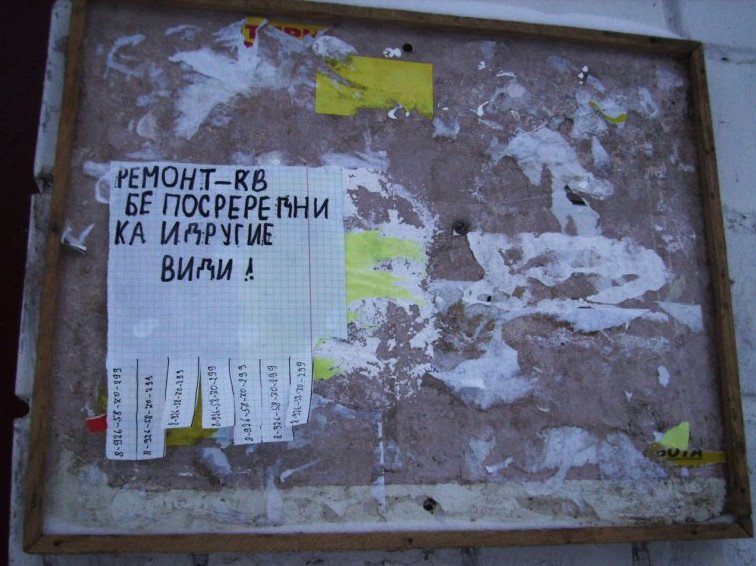 РЕМОНТ-КВ
БЕ ПОСРЕРЕДНИ
КА И ДРУГИЕ
ВИДИ!
8-926-58-70-299
8-926-58-70-299
8-926-58-70-299
8-926-58-70-299
8-926-58-70-299
8-926-58-70-299
8-926-58-70-299